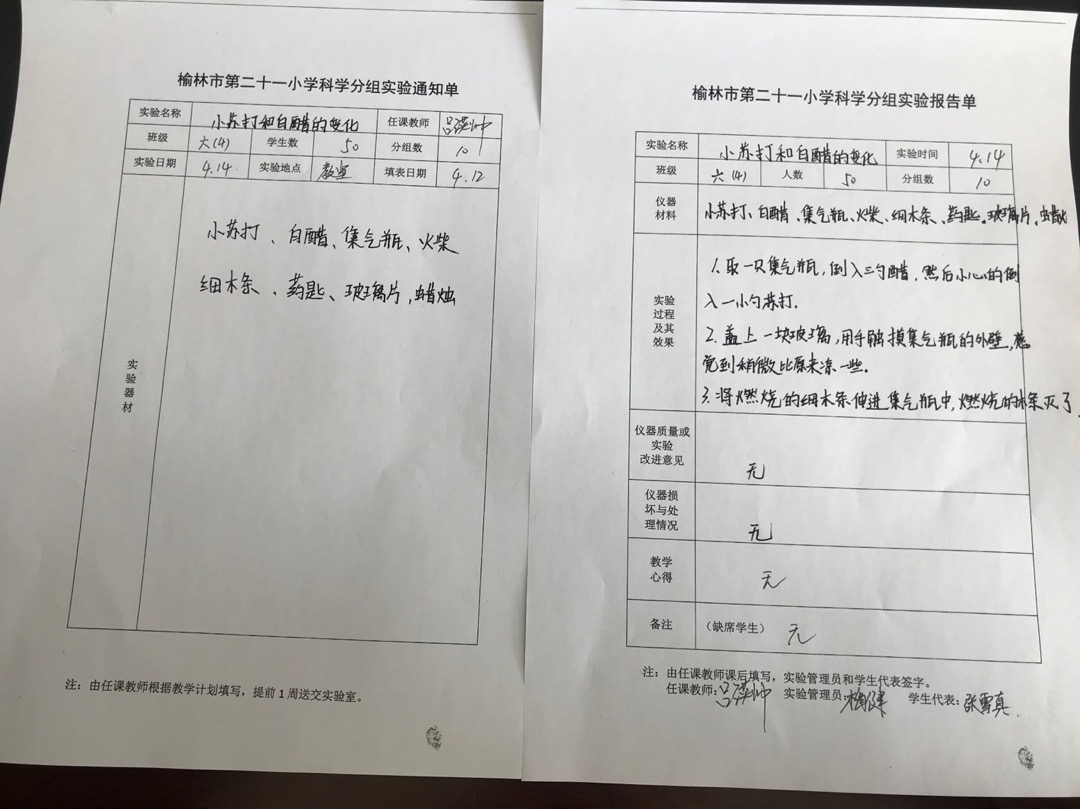 榆林市第二十一小学科学分组实验通知单
实验名称 小苏打和白醋的变化 任课教师
班级 六(4) 学生数 50 分组数 10
实验日期 4.14 实验地点 教室 填表日期 4.12
小苏打、白醋、集气瓶、火柴
细木条、药匙、玻璃片,蜡烛
实验器材
注：由任课教师根据教学计划填写，提前1周送交实验室。
榆林市第二十一小学科学分组实验报告单
实验名称 小苏打和白醋的变化 实验时间 4.14
班级 六(4) 人数 50 分组数 10
仪器材料 小苏打、白醋、集气瓶、火柴、细木条、药匙、玻璃片、蜡烛
实验过程及其效果
1.取一只集气瓶,倒入三勺醋,然后小心的倒
入一小勺苏打.
2.盖上一块玻璃,用手触摸集气瓶的外壁,感
觉到稍微比原来凉一些.
3.将燃烧的细木条伸进集气瓶中,燃烧的木条灭了.
仪器质量或实验改进意见 无
仪器损坏与处理情况 无
教学心得 无
备注 （缺席学生） 无
注：由任课教师课后填写，实验管理员和学生代表签字。
任课教师： 实验管理员： 学生代表：张雪真.